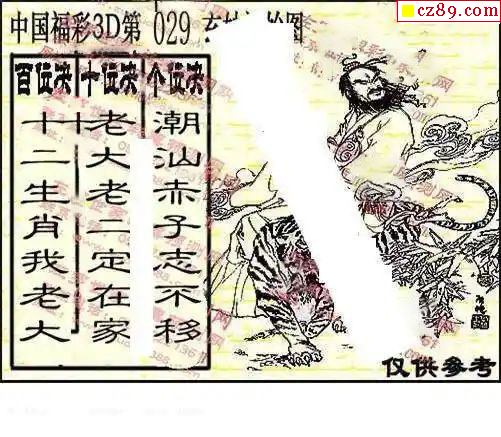 cz89.com
中国福彩3D第 029
百位决
十二生肖我老大
十位决
老大老二定在家
个位决
潮汕赤子志不移
仅供参考